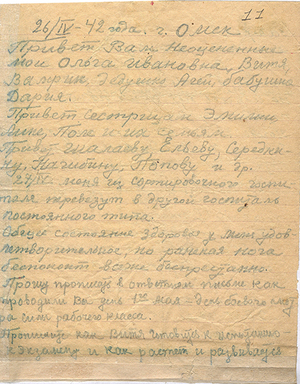 11
26/IV-42 года. г. Омск
Привет Вам Неоцененные
мои Ольга Ивановна, Витя,
бабушка
Дария.
Привет Сестрицам
Поле и их семьям
Привет Елееву,
Нагибину, Попову и гр.
27/IV меня из сортировочного госпи
таля перевезут в другой госпиталь
постоянного типа.
Общее состояние здоровья у меня удов
летворительное, но раненая нога
беспокоит всё же беспрестанно.
Прошу прописать в ответном письме как
проводили Вы день 1го мая - день боевого смот
ра сил рабочего класса.
Пропишите как Витя готовится к
экзамену и как растет и развивается